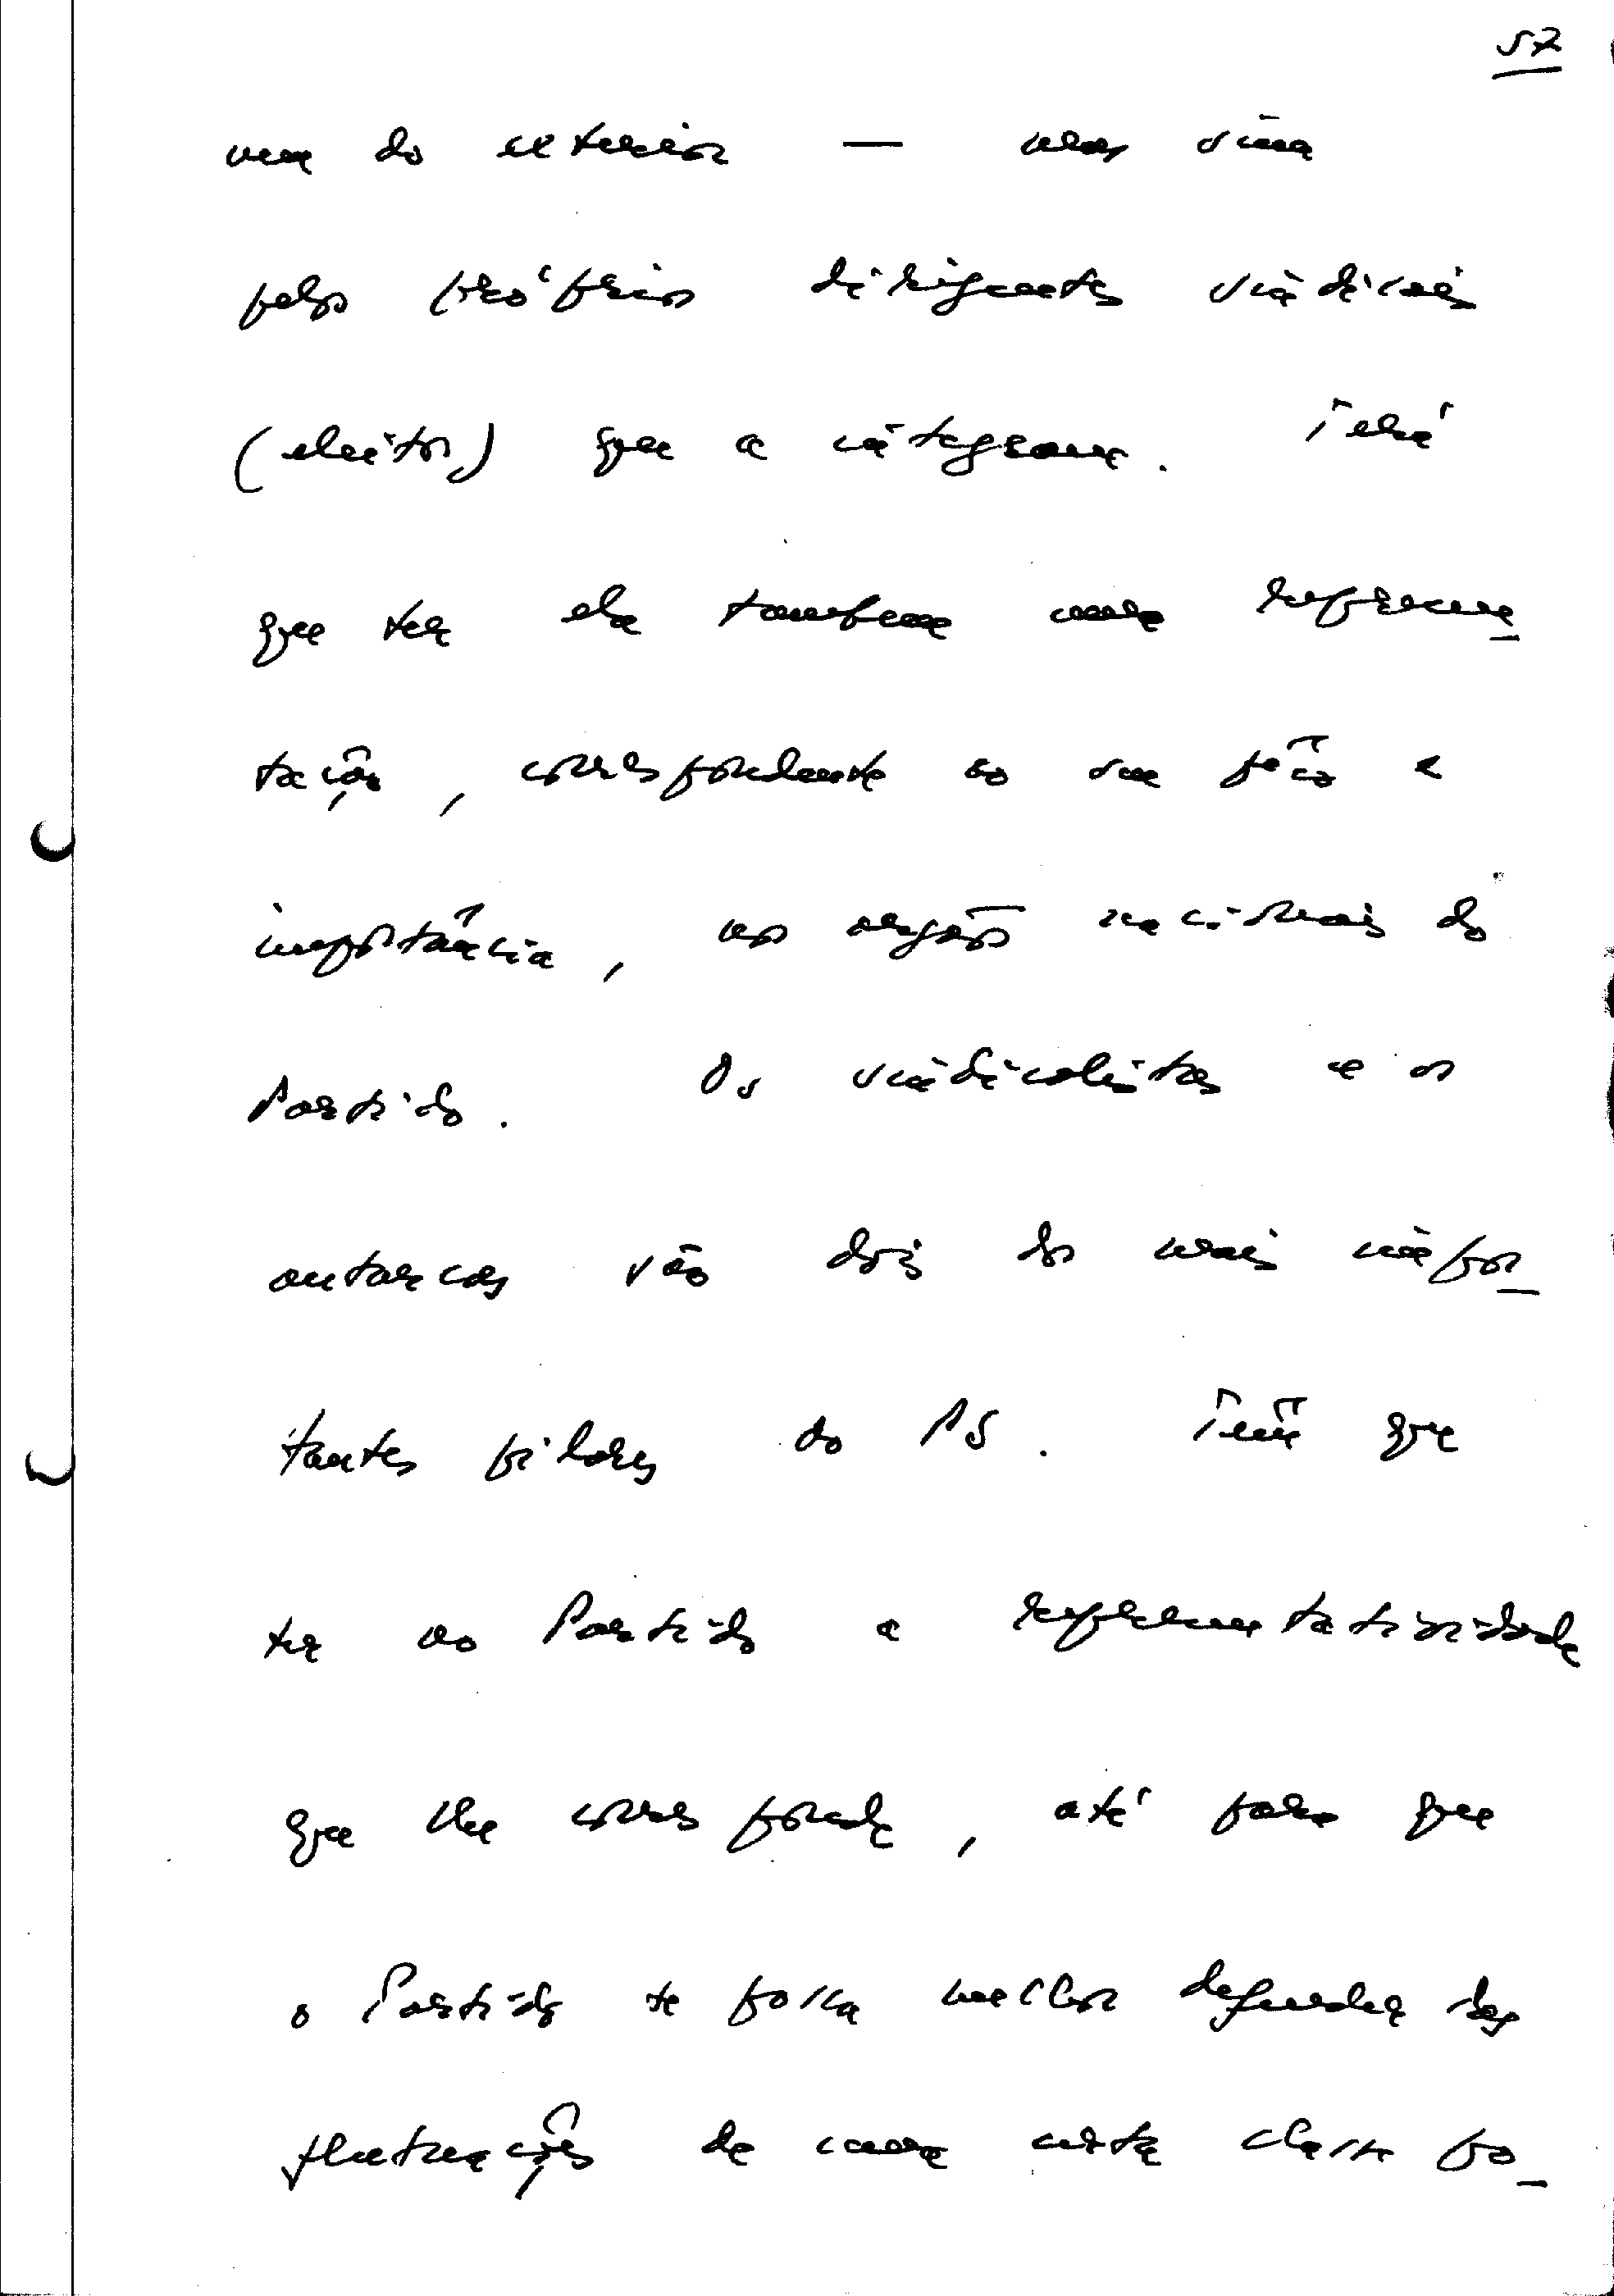 57
vem do exterior — mas sim
pelos próprios dirigentes sindicais
(eleitos) que a integram. Terá
que ter ela também uma represen_
tação, correspondente ao seu pêso e
importância, nos orgãos nacionais do
Partido. Os sindicalistas e os
autarcas são dois dos mais impor_
tantes pilares do PS. Têm que
ter no Partido a representatividade
que lhe corresponde, até para que
o Partido se possa melhor defender das
flutuações de uma certa classe po_